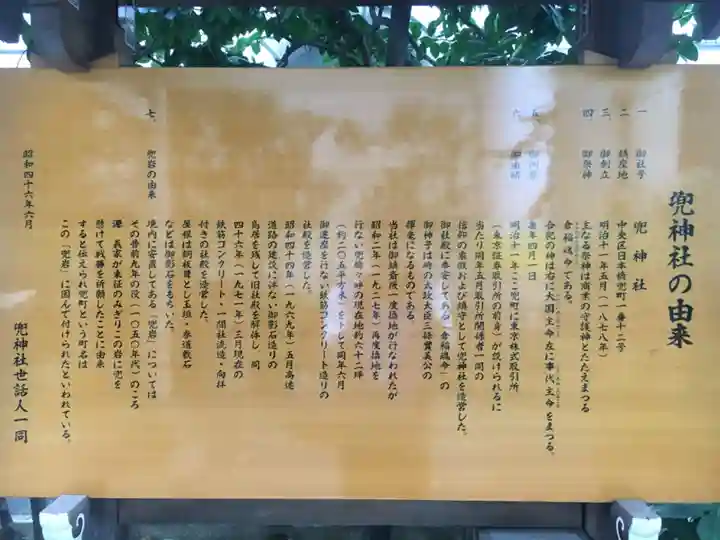 兜神社の由来
一 御社号 兜神社
二 鎮座地 中央区日本橋兜町一番十二号
三、御創立 明治十一年五月(一八七八年)
四 御祭神 主なる祭神は商業の守護神とたたえまつる
倉稲魂命である。
合祀の神は右に大国主命 左に事代主命をまつる。
五、 毎年四月一日
六、御由緒 明治十一年、ここ兜町に東京株式取引所
(東京証券取引所の前身)が設けられるに
当たり同年五月取引所関係者一同の
信仰の象徴および鎮守として兜神社を造営した。
御社殿に奉安してある「倉稲魂命」の
御神号は時の太政大臣三條實美公の
揮毫になるものである
当社は御鎮斎後一度換地が行なわれたが
昭和二年(一九二七年)再度換地を
行ない兜橋々畔の現在地約六十二坪
(約二〇五平方米)を卜して同年六月
御遷座を行ない鉄筋コンクリート造りの
社殿を造営した。
昭和四十四年(一九六九年)五月高速
道路の建設に伴ない御影石造りの
鳥居を残して旧社殿を解体し 同
四十六年(一九七一年)三月現在の
鉄筋コンクリート・一間社流造・向拝
付きの社殿を造営した。
屋根は銅板葺とし玉垣・参道敷石
などは御影石をもちいた。
七、 兜岩の由来 境内に安置してある「兜岩」については
その昔前九年の役(一〇五〇年代)のころ
源 義家が東征のみぎりこの岩に兜を
懸けて戦勝を祈願したことに由来
すると伝えられ兜町という町名は
この「兜岩」に因んで付けられたといわれている。
昭和四十六年六月
兜神社世話人一同